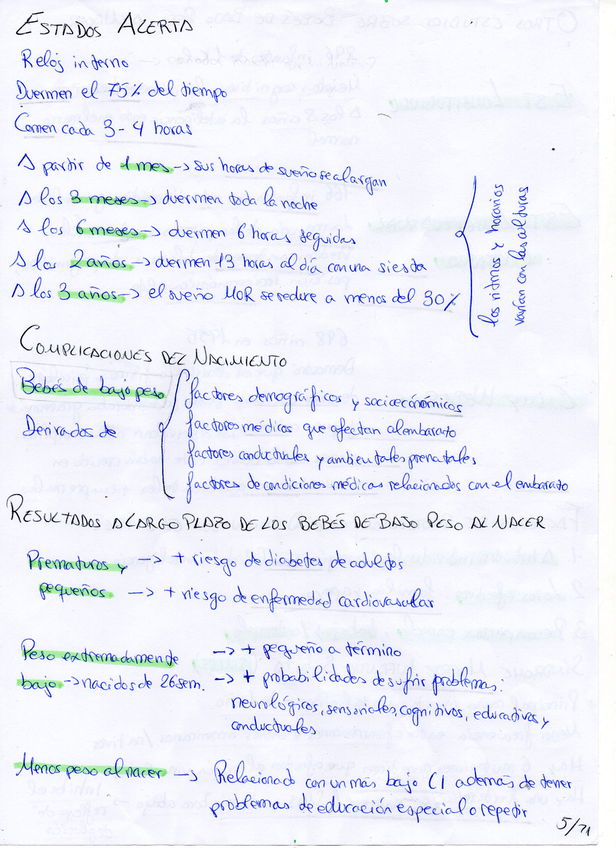 ESTADOS ALERTA
Reloj interno
Duermen el 75% del tiempo
Comen cada 3-4 horas
A partir de 1 mes -> sus horas de sueño se alargan
A los 3 meses -> duermen toda la noche
A los 6 meses -> duermen 6 horas seguidas
A los 2 años -> duermen 13 horas al día con una siesta
A los 3 años -> el sueño MOR se reduce a menos del 30%
los ritmos y horarios
varían con las culturas
COMPLICACIONES DEL NACIMIENTO
Bebés de bajo peso
Derivados de
factores demográficos y socioeconómicos
factores médicos que afectan al embarazo
factores conductuales y ambientales prenatales
factores de condiciones médicas relacionados con el embarazo
RESULTADOS A LARGO PLAZO DE LOS BEBÉS DE BAJO PESO AL NACER
Prematuros y -> + riesgo de diabetes de adultos
pequeños -> + riesgo de enfermedad cardiovascular
Peso extremadamente -> + pequeño a termino
bajo -> nacidos de 26 sem. -> + probabilidades de sufrir problemas:
neurológicos, sensoriales, cognitivos, educativos y
conductuales
Menos peso al nacer -> Relacionado con un más bajo CI además de tener
problemas de educación especial o repetir
5/71